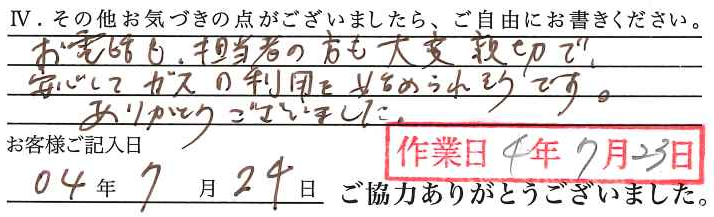 Ⅳ．その他お気づきの点がございましたら、ご自由にお書きください。
お電話も、担当者の方も大変親切で、
安心してガスの利用を始められそうです。
ありがとうございました。
お客様ご記入日
作業日 4年 7月23日
04年 7月 24日 ご協力ありがとうございました。